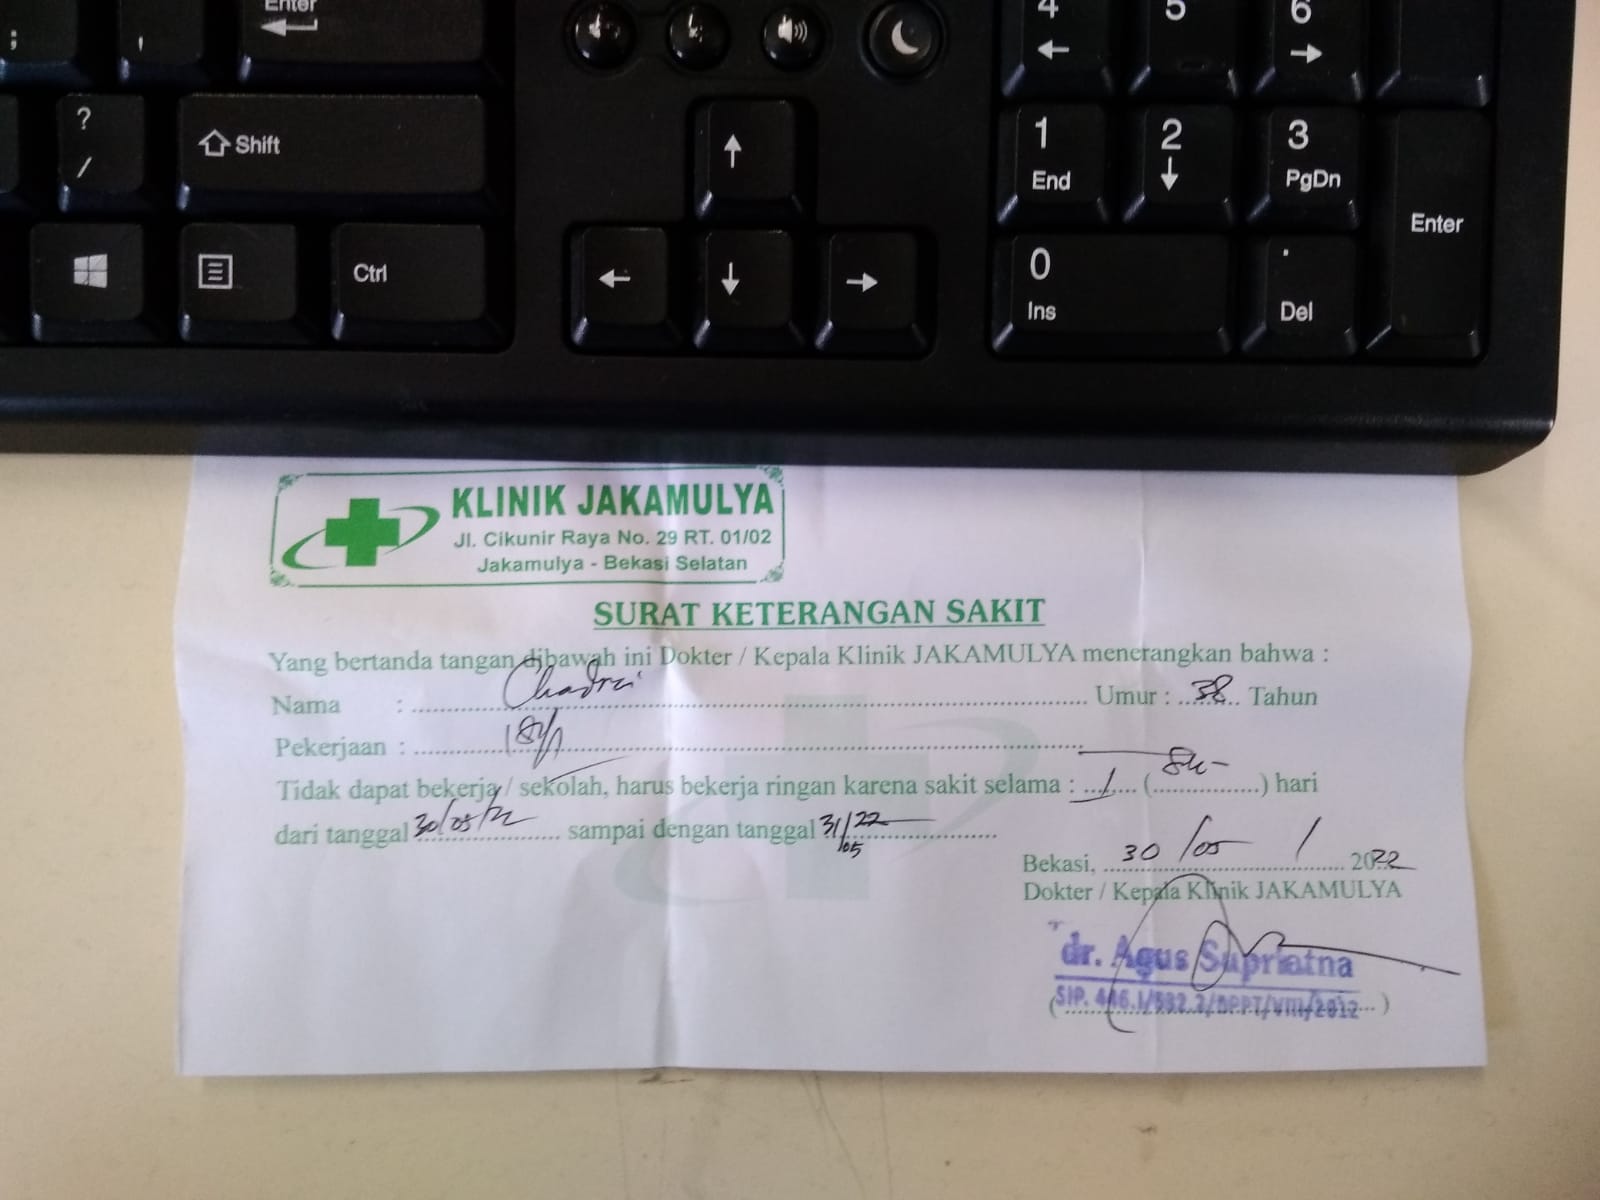 ; , Enter
4 5 6
? / Shift
1 End 2 3 PgDn
Enter
Ctrl
0 Ins . Del
KLINIK JAKAMULYA
Jl. Cikunir Raya No. 29 RT. 01/02
Jakamulya - Bekasi Selatan
SURAT KETERANGAN SAKIT
Yang bertanda tangan dibawah ini Dokter / Kepala Klinik JAKAMULYA menerangkan bahwa :
Nama : Umur : 38 Tahun
Pekerjaan :
Tidak dapat bekerja / sekolah, harus bekerja ringan karena sakit selama : 1 ( ) hari
dari tanggal 30/05/22 sampai dengan tanggal 31/05 22
Bekasi, 30/05 / 2022
Dokter / Kepala Klinik JAKAMULYA
dr. Agus Supriatna
SIP.